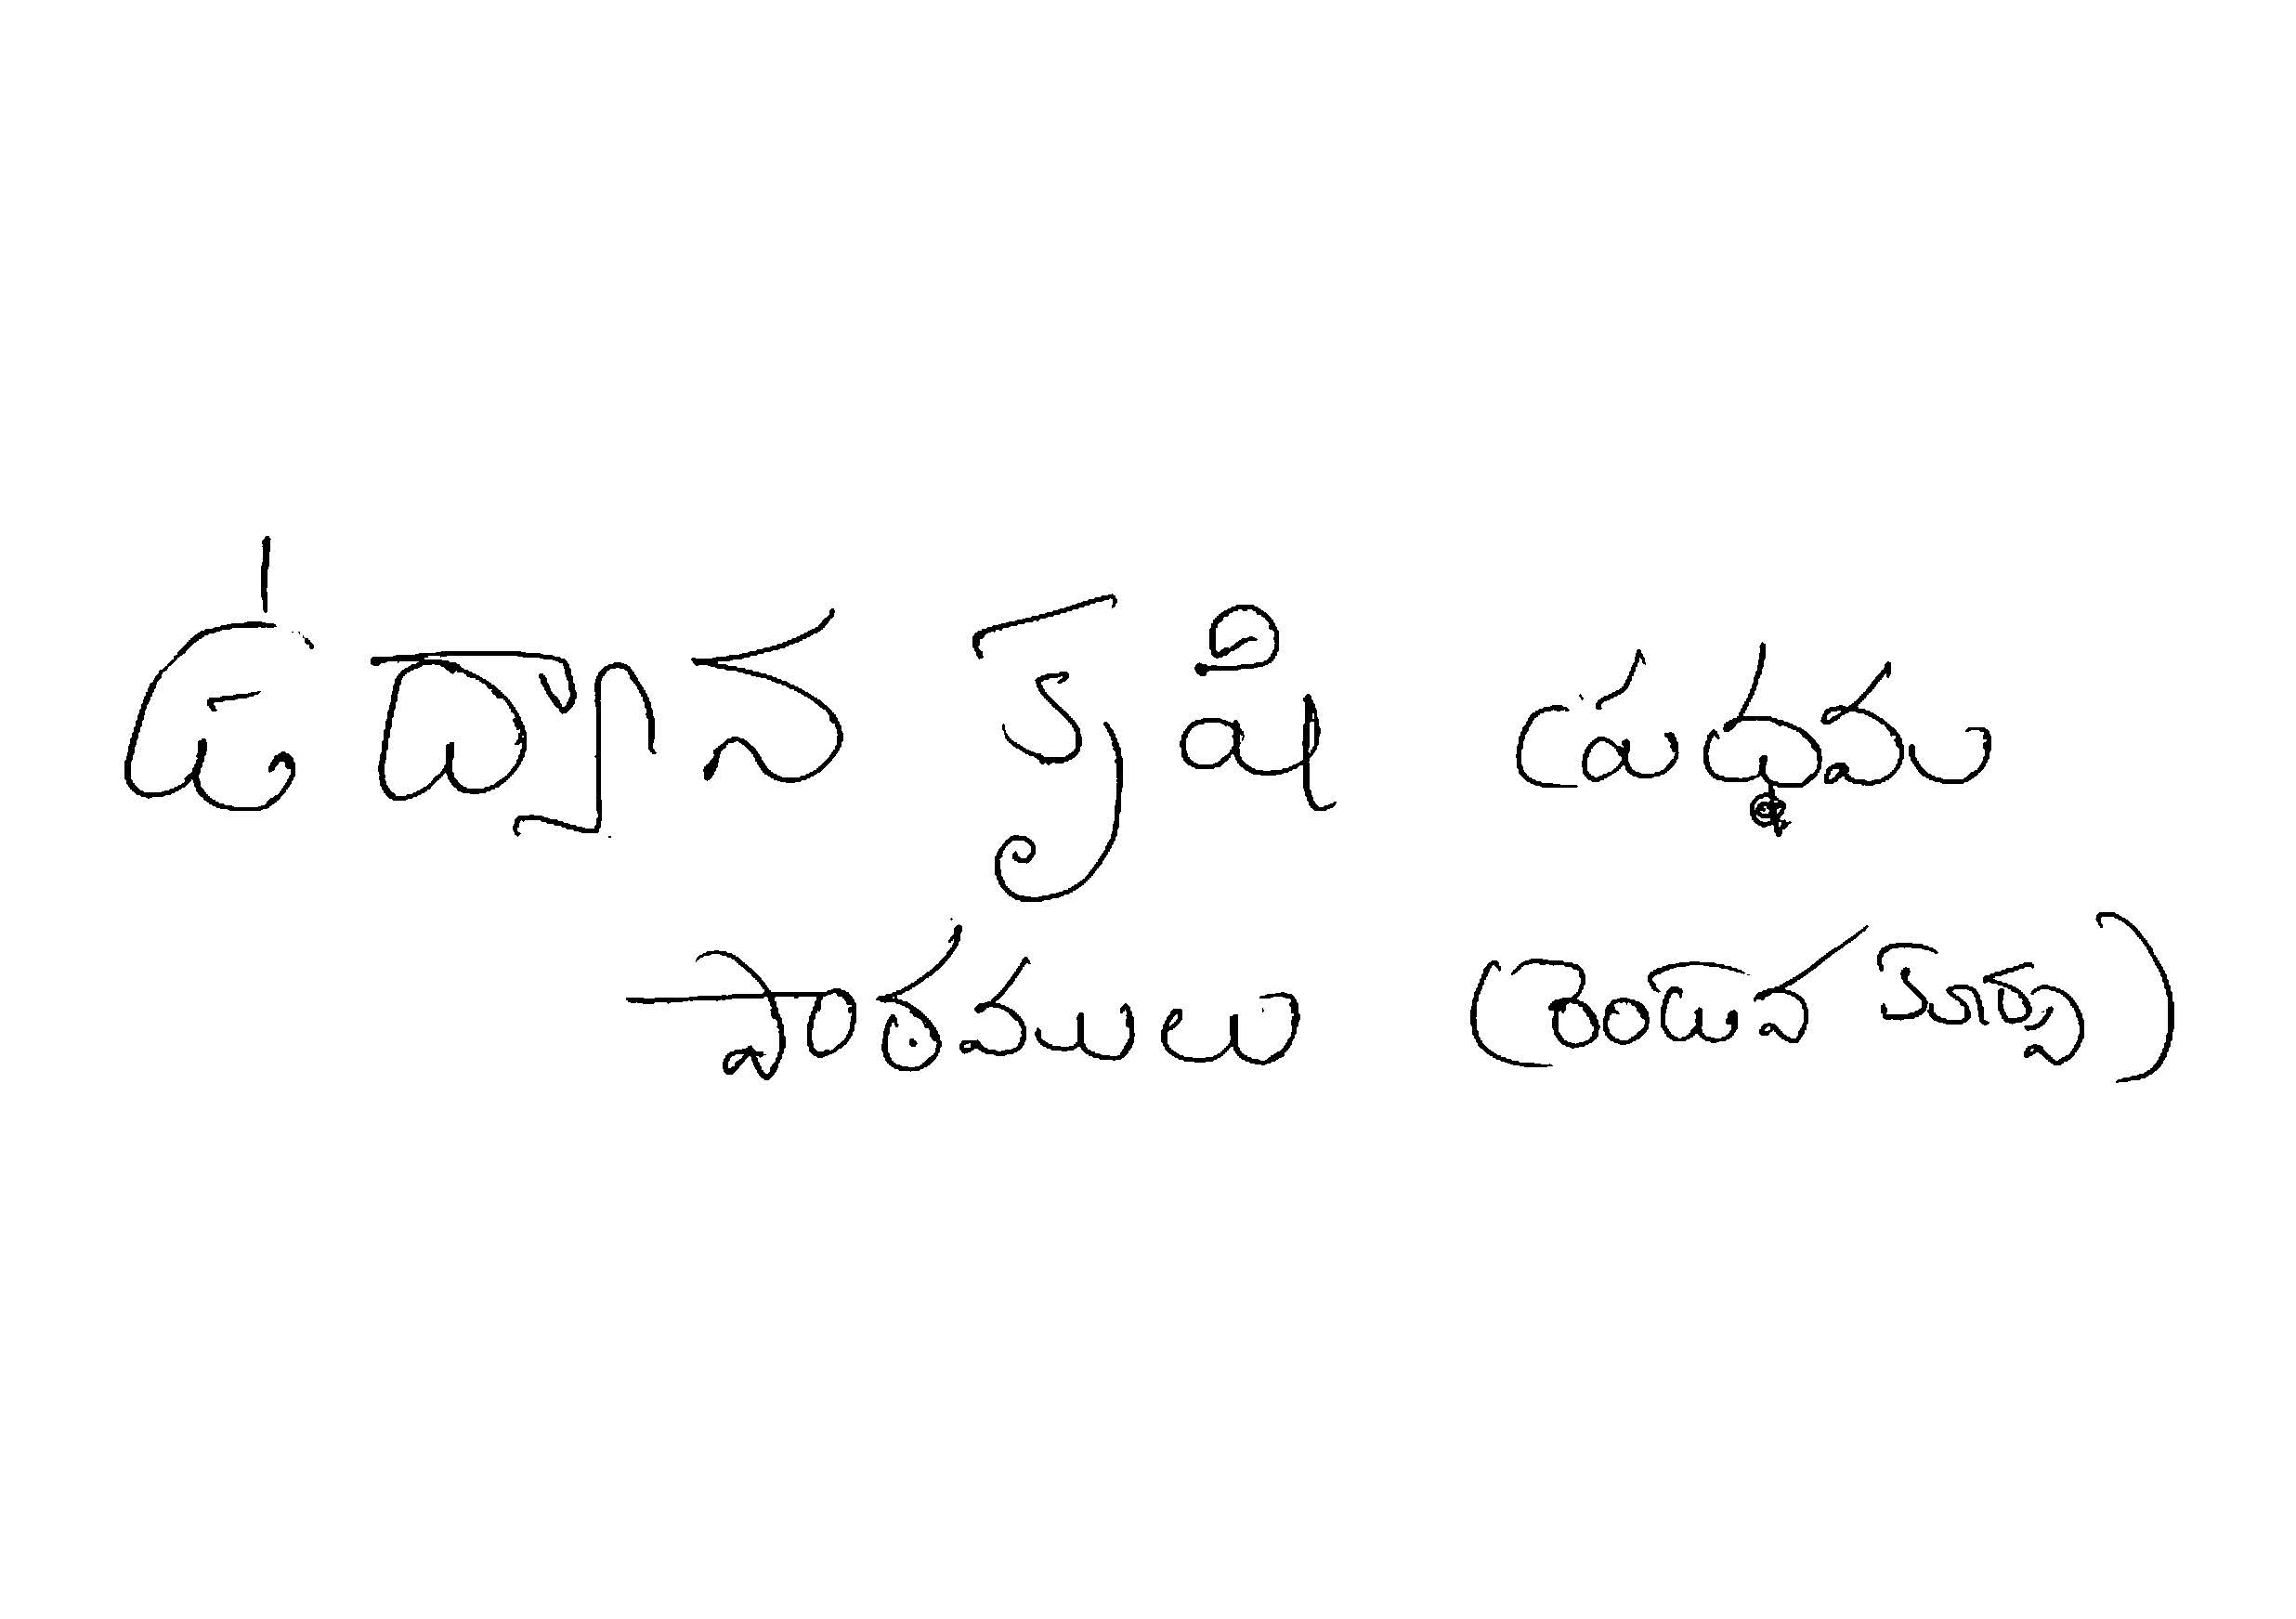 ఉద్యాన కృషి ప్రథమ
పాఠములు (రెండవ కూర్పు)